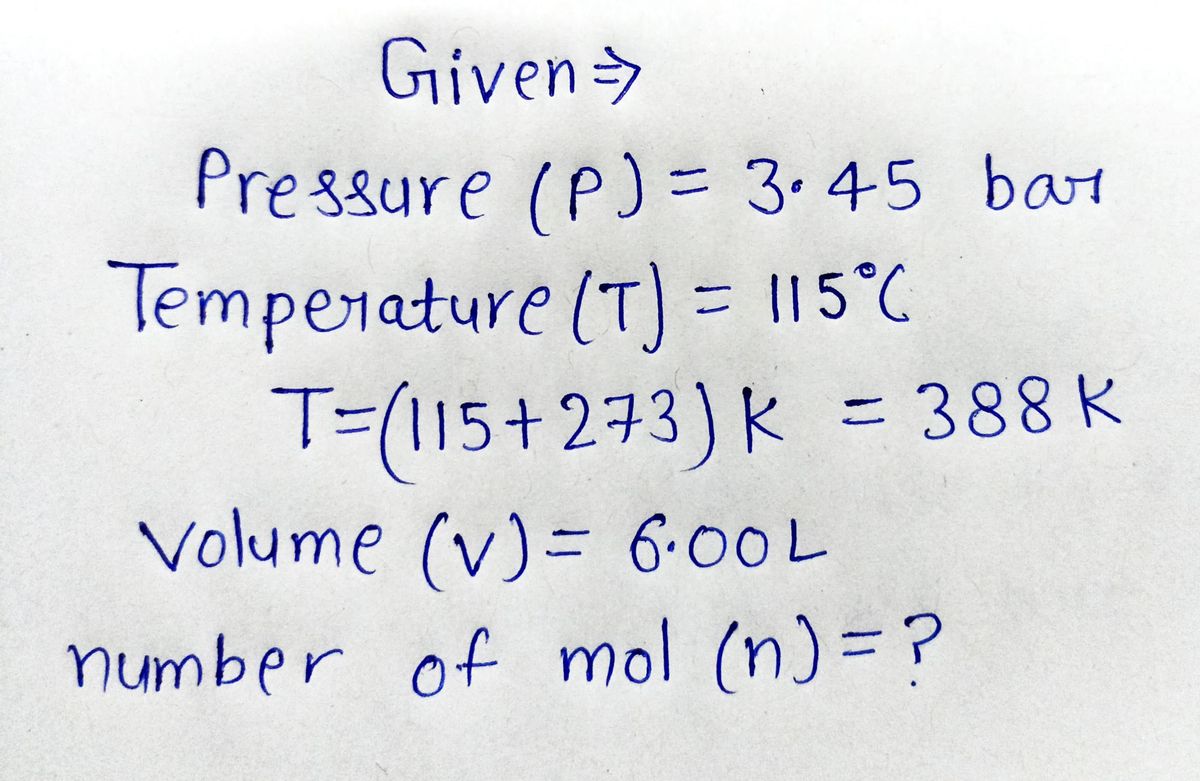 Given ⇒
Pressure (P) = 3.45 bar
Temperature (T) = 115°C
T=(115+273) K = 388 K
Volume (V) = 6.00L
number of mol (n) = ?